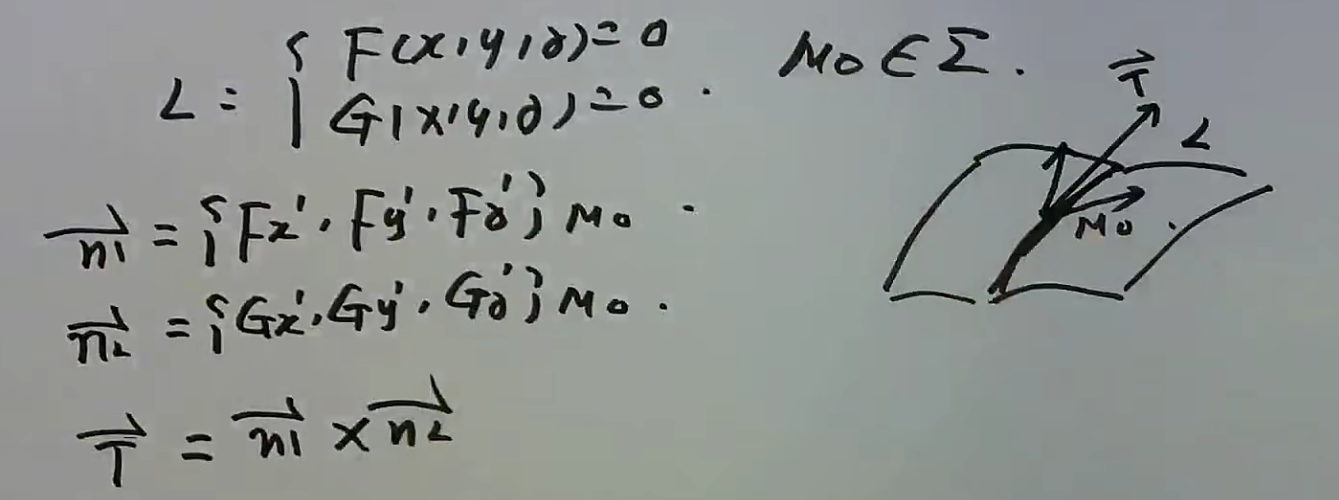 L = { F(x, y, z) = 0
G(x, y, z) = 0 .
M0 ∈ Σ .
n1 = {Fx', Fy', Fz'} M0 .
n2 = {Gx', Gy', Gz'} M0 .
T = n1 × n2
T
L
M0 .